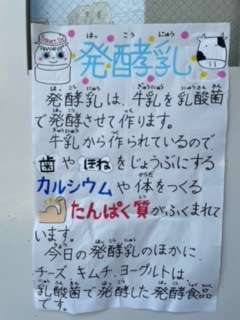 発酵乳
発酵乳は、牛乳を乳酸菌
で発酵させて作ります。
牛乳から作られているので
歯やほねをじょうぶにする
カルシウムや体をつくる
たんぱく質がふくまれて
います。
今日の発酵乳のほかに、
チーズ キムチ、ヨーグルトは
乳酸菌で発酵した発酵食品
です。